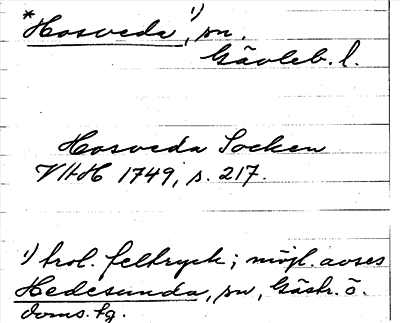 *Hosveda,¹⁾ sn.
Gävleb. l.
Hosveda Socken
VHH 1749, s. 217.
¹⁾ trol. feltryck; möjl. avses
Hedesunda, sn, Gästr. ö.
doms. tg.